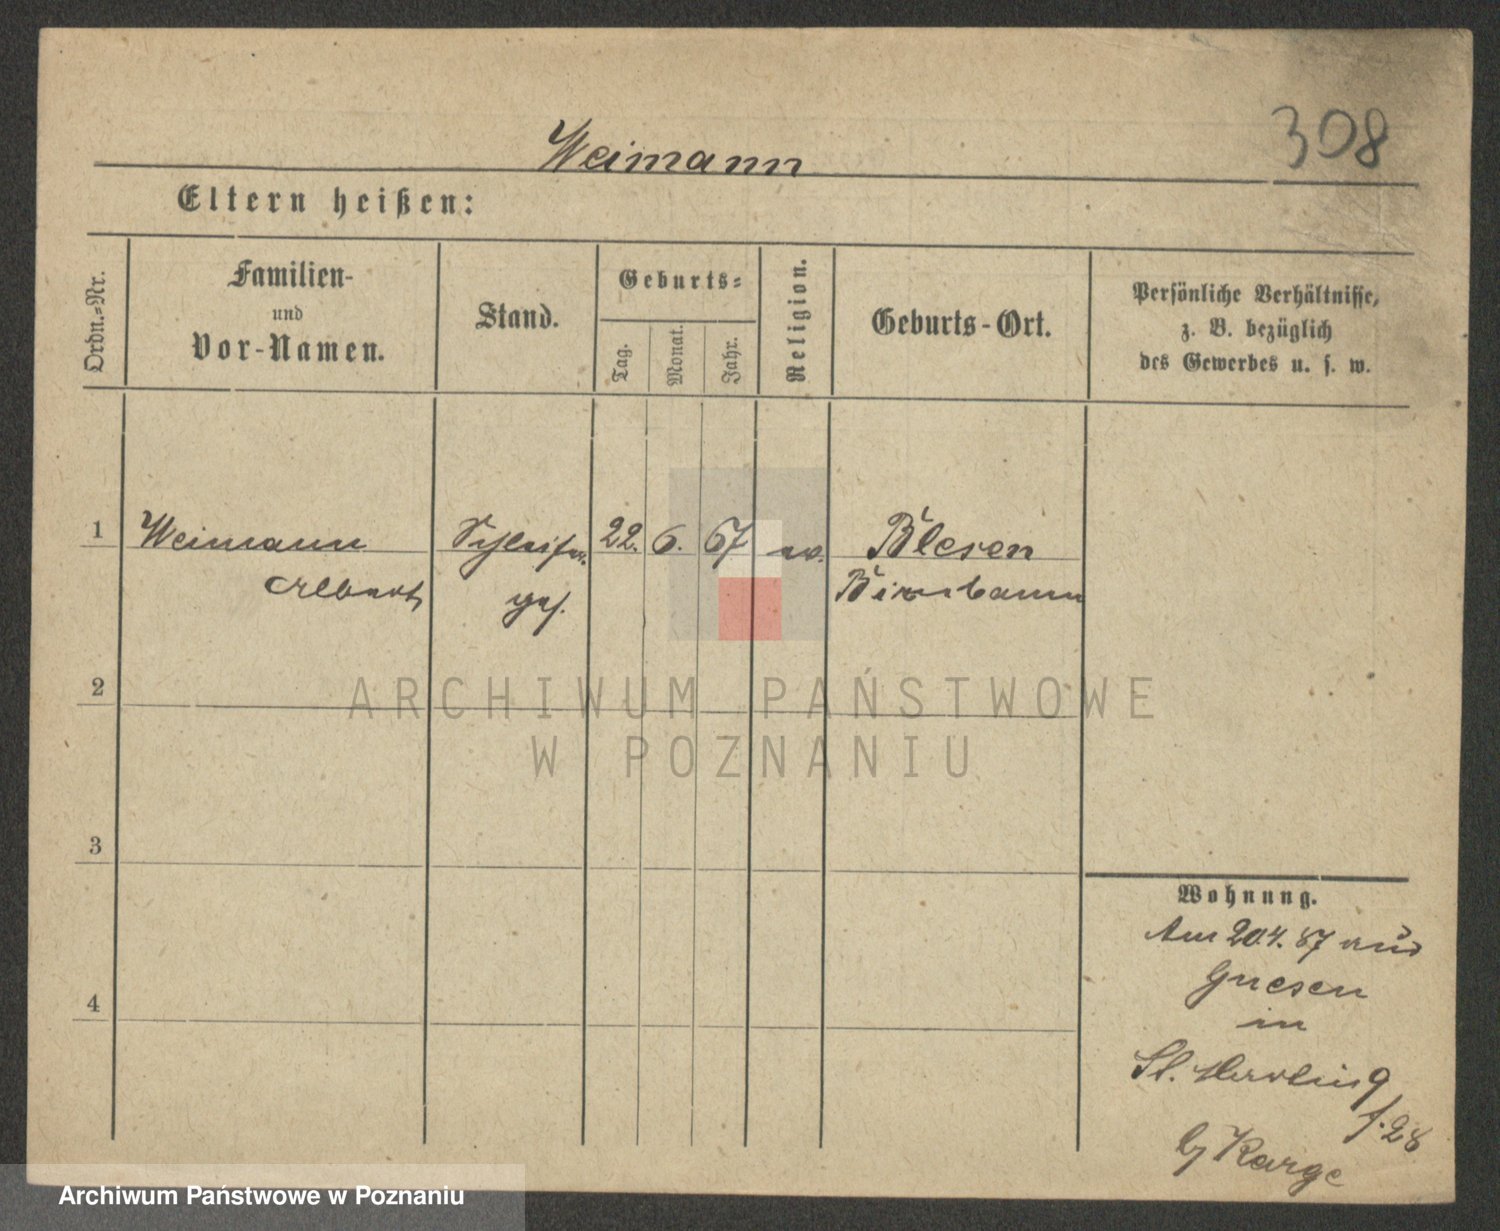 308
Weimann
Eltern heißen:
Ordn.=Nr.
Familien-
und
Vor-Namen.
Stand.
Geburts=
Tag.
Monat.
Jahr.
Religion.
Geburts-Ort.
Persönliche Verhältnisse,
z. B. bezüglich
des Gewerbes u. s. w.
1 Weimann Schleifer 22. 6. 67 ev. Blesen
Albert Birnbaum
2
3
4
Wohnung.
Am 20.4. 87 aus
Gnesen
in
St. Martin 9
f. 28
bj Karge
ARCHIWUM PAŃSTWOWE
W POZNANIU
Archiwum Państwowe w Poznaniu